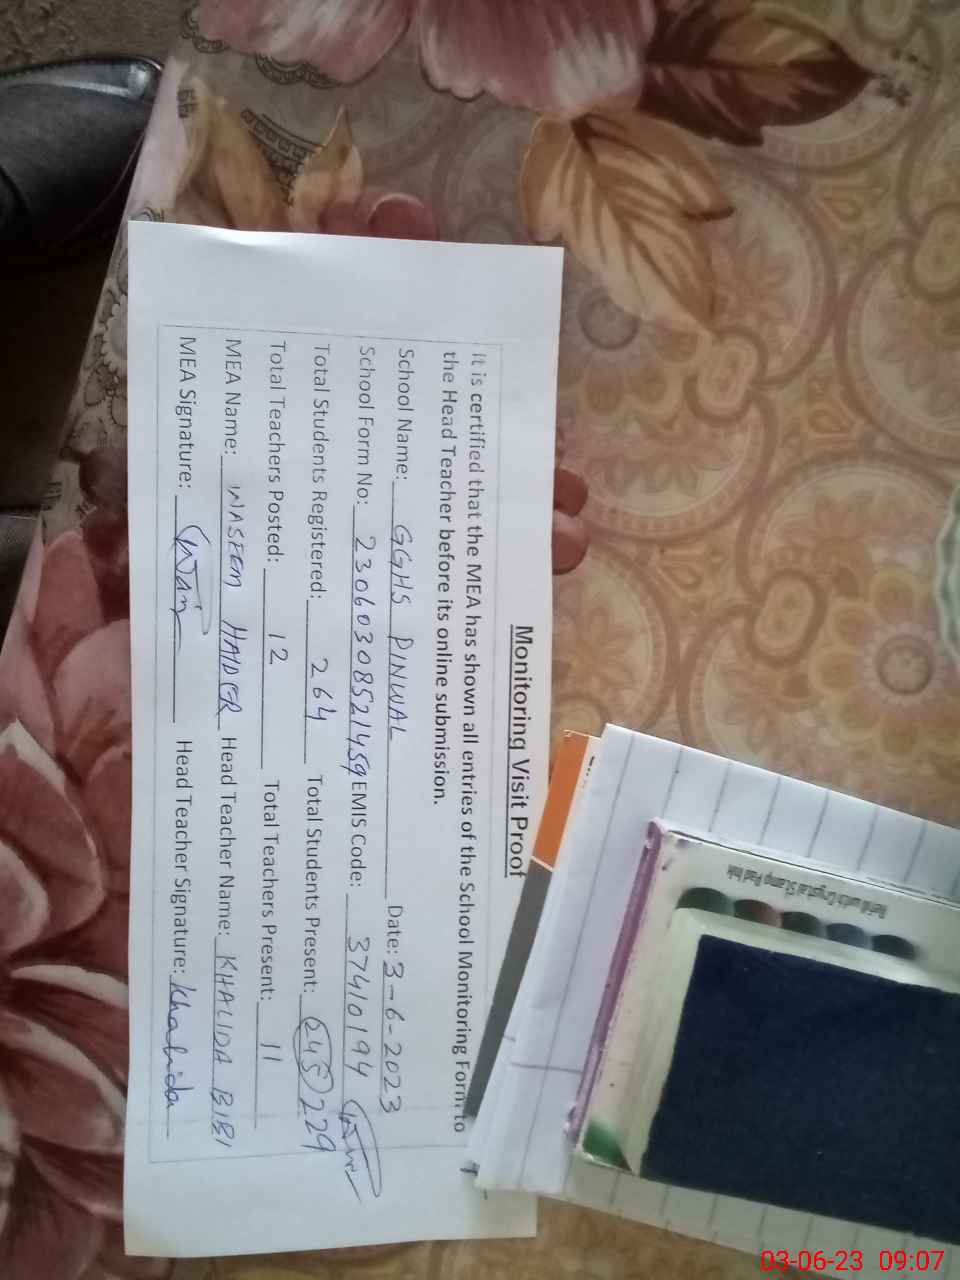 Monitoring Visit Proof
It is certified that the MEA has shown all entries of the School Monitoring Form to
the Head Teacher before its online submission.
School Name: GGHS PINWAL Date: 3-6-2023
School Form No: 23060308521459 EMIS Code: 37410194
Total Students Registered: 264 Total Students Present: 245 229
Total Teachers Posted: 12 Total Teachers Present: 11
MEA Name: WASEEM HAIDER Head Teacher Name: KHALIDA BIBI
MEA Signature: Head Teacher Signature: Khalida
Refill with Crystal Stamp Pad Ink
03-06-23 09:07